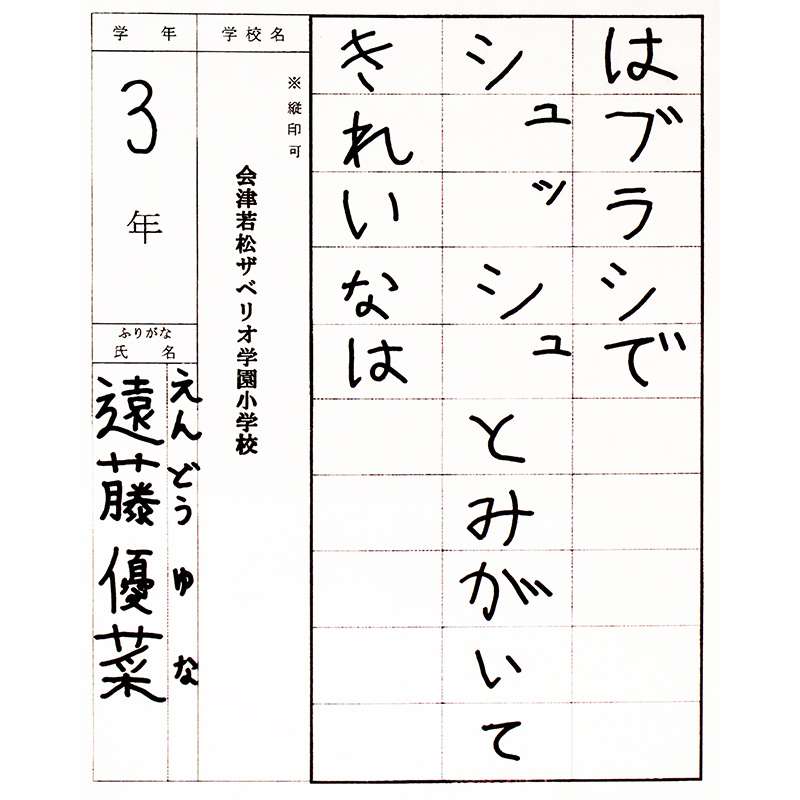 はブラシで
シュッシュとみがいて
きれいなは
学校名
※縦印可
会津若松ザベリオ学園小学校
学年
3年
ふりがな
氏名
えんどうゆな
遠藤優菜